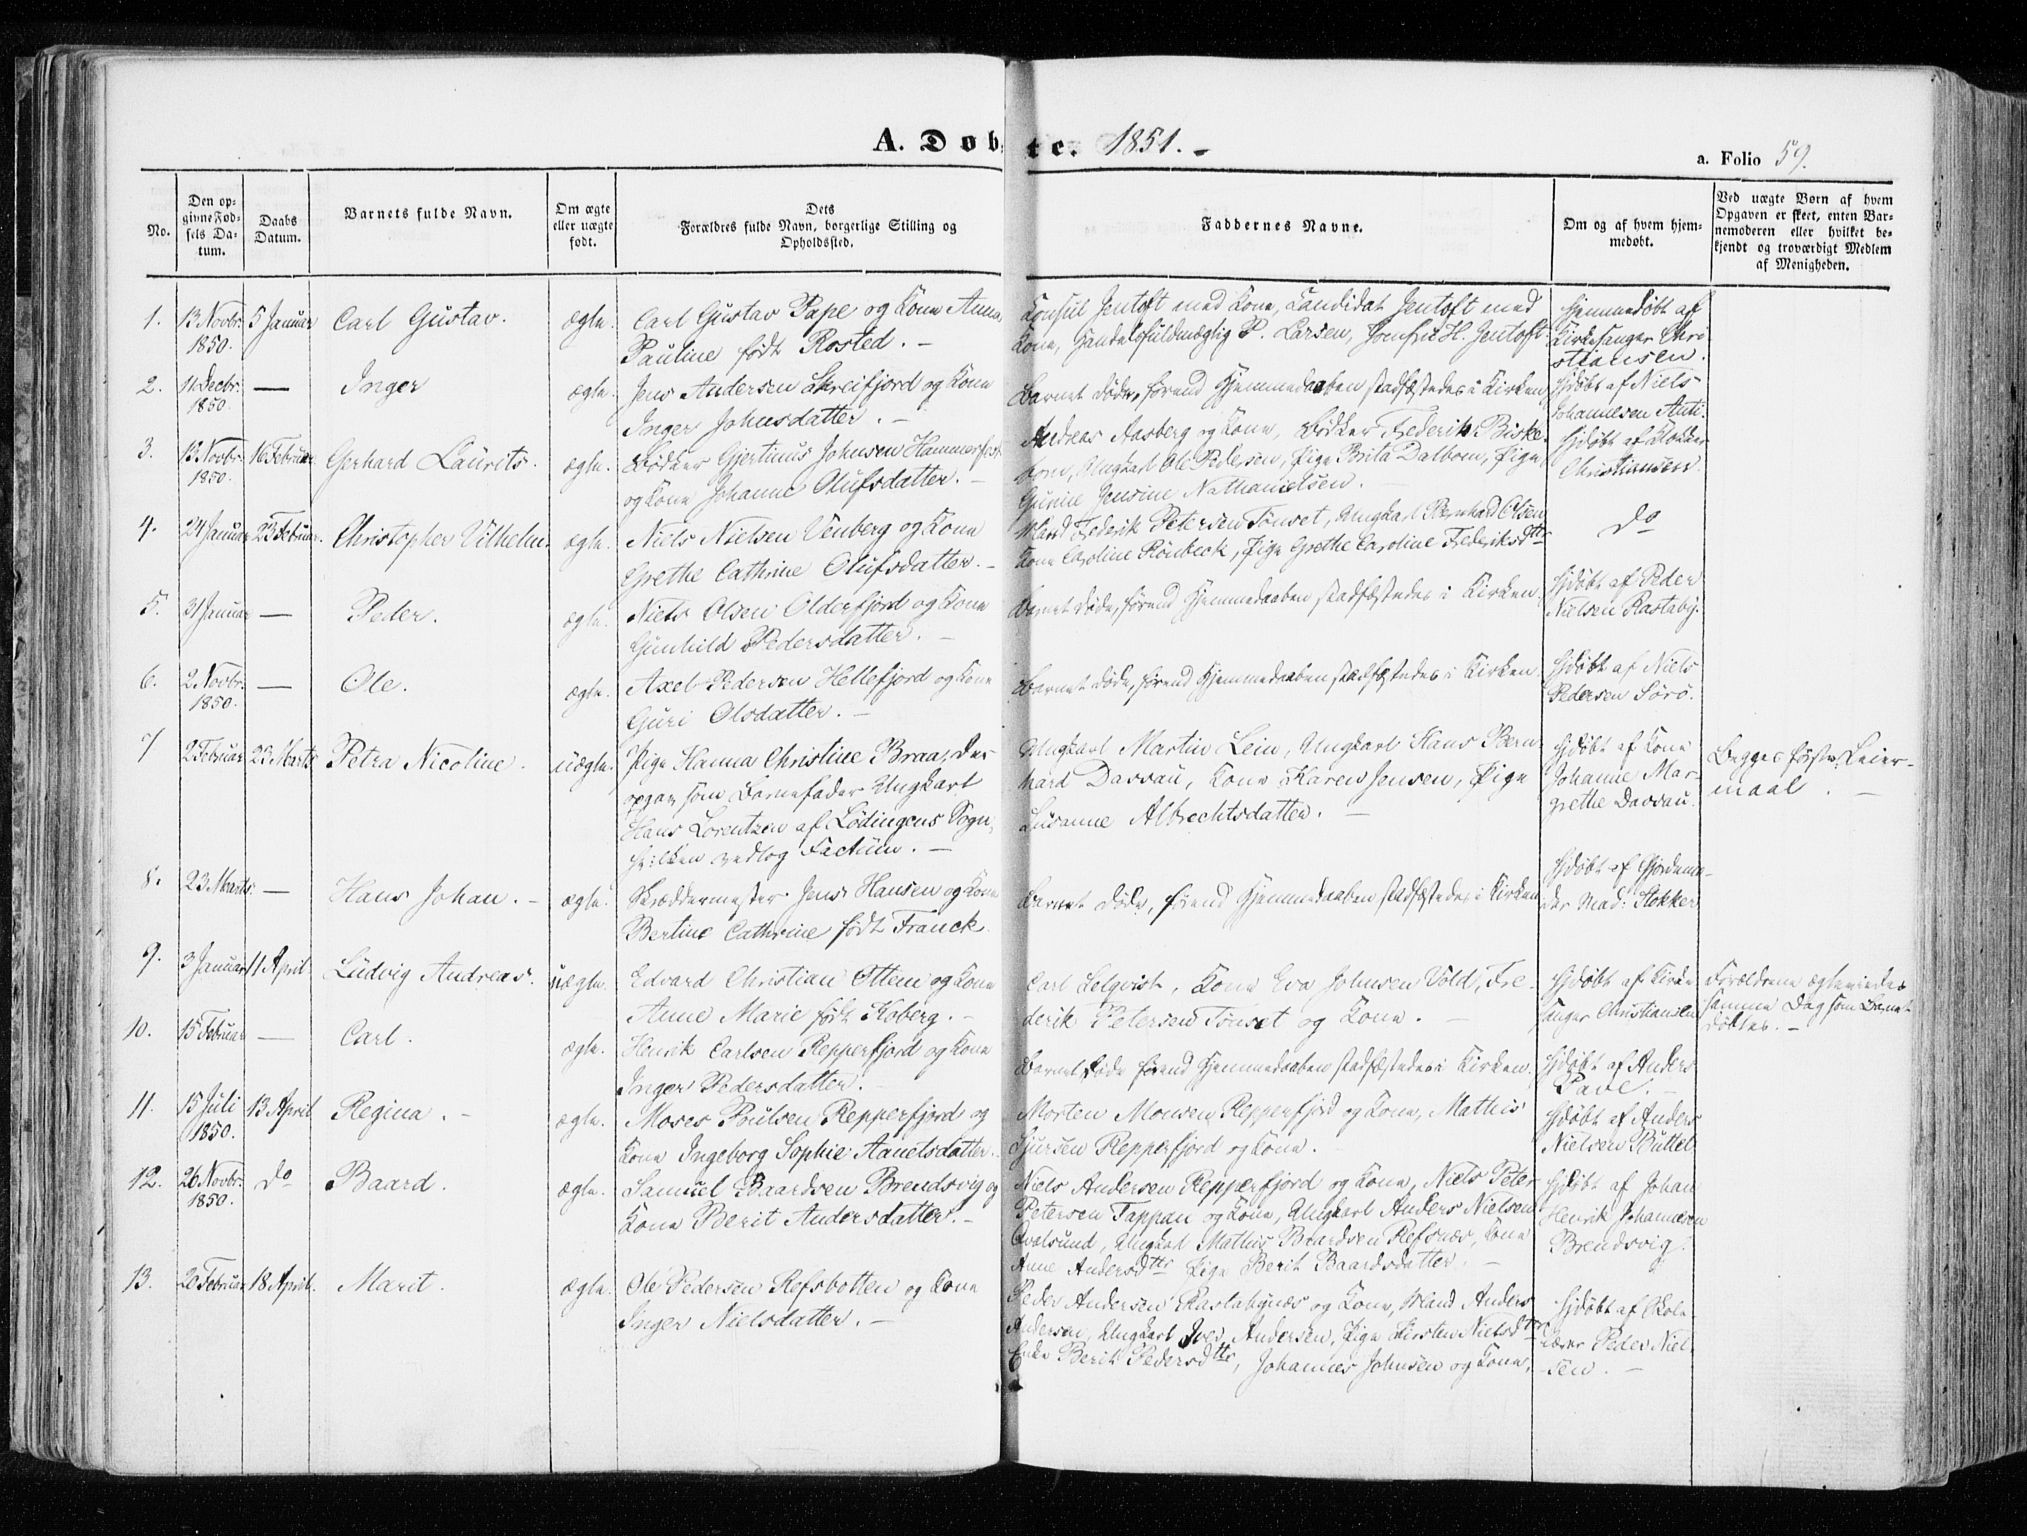 A. Døbte. 1851. -
a. Folio 59.
No.
Den op-
givne Fød-
sels Da-
tum.
Daabs
Datum.
Barnets fulde Navn.
Om ægte
eller uægte
født.
Dets
Forældres fulde Navn, borgerlige Stilling og
Opholdssted.
Faddernes Navne.
Om og af hvem hjem-
medøbt.
Ved uægte Børn af hvem
Opgaven er skeet, enten Bar-
nemoderen eller hvilket be-
kjendt og troværdigt Medlem
af Menigheden.
1. 13 Novbr. 1850. 5 Januar Carl Gustav. ægte.
Carl Gustav Pape og Kone Anna
Pauline født Rosted. -
Konsul Jentoft med Kone, Candidat Jentoft med
Kone, Handelsfuldmægtig P. Larsen, Jomfru H. Jentoft.
Hjemmedøbt af
Kirkesanger Chri
stiansen.
2. 11 Decbr. 1850. — Inger ægte.
Jens Andersen Skreifjord og Kone
Inger Johnsdatter. -
Barnet døde, førend Hjemmedaaben stadfæstedes i Kirken
Hjdøbt af Niels
Johannesen Anti.
3. 12 Novbr. 1850. 16 Februar Gerhard Laurits. ægte.
Bødker Gjertinus Johnsen Hammerfest
og Kone Johanne Olufsdatter. -
Andreas Aasberg og Kone, Bødker Frederik Biske-
born, Ungkarl Ole Pedersen, Pige Brita Dalbom, Pige
Gurine Jensine Nathanielsen. -
Hjdøbt af Klokker
Christiansen.
4. 24 Januar 23 Februar. Christopher Vilhelm. ægte.
Niels Nielsen Venberg og Kone
Grethe Cathrine Olufsdatter. -
Mand Frederik Petersen Tønset, Ungkarl Bernhard Olsen
Kone Caroline Rönbeck, Pige Grethe Caroline Frederiksdtr
Do
5. 31 Januar — Peder. ægte.
Niels Olsen Olderfjord og Kone
Gunhild Pedersdatter. -
Barnet døde, førend Hjemmedaaben stadfæstedes i Kirken
Hjdøbt af Peder
Nielsen Rastaby.
6. 2 Novbr. 1850. — Ole. ægte.
Axel Pedersen Hellefjord og Kone
Guri Olsdatter. -
Barnet døde, førend Hjemmedaaben stadfæstedes i Kirken
Hjdøbt af Niels
Pedersen Sörö.
7 2 Februar 23 Marts Petra Nicoline. uægte.
Pige Hanna Christine Braa, der
opgav som Barnefader Ungkarl
Hans Lorentzen af Lödingens Sogn,
hvilken vedtog Factum. -
Ungkarl Martin Lein, Ungkarl Hans Bern-
hard Davvau, Kone Karen Jensen, Pige
Susanne Albrechtsdatter. -
Hjdøbt af Kone
Johanne Mar-
grethe Davvau.
Begges første Leier-
maal. -
8. 23 Marts. — Hans Johan. - ægte.
Skræddermester Jens Hansen og Kone
Bertine Cathrine født Franck.
Barnet døde, førend Hjemmedaaben stadfæstedes i Kirken
Hjdøbt af Gjordemo-
der Mad: Klokker
9. 3 Januar 11 April Ludvig Andreas. uægte.
Edvard Christian Ottem og Kone
Anne Marie født Koberg. -
Carl Selqvist, Kone Eva Johnsen Vold, Fre-
derik Petersen Tönset og Kone. -
Hjdøbt af Kirke
sanger Christiansen
Forældrene ægteviedes
samme Dag som Barnet
døbtes. -
10. 15 Februar — Carl. ægte.
Henrik Carlsen Repperfjord og Kone
Inger Pedersdatter.
Barnet døde førend Hjemmedaaben stadfæstedes i Kirken.
Hjdøbt af Anders
11. 15 Juli 1850. 13 April Regina. - ægte.
Moses Poulsen Repperfjord og
Kone Ingeborg Sophie Aanetsdatter.
Morten Monsen Repperfjord og Kone, Mathis
Sjursen Repperfjord og Kone.
Hjdøbt af Anders
Nielsen Buttel
12. 26 Novbr. 1850. Do Baard. ægte.
Samuel Baardsen Brendsvig og
Kone Berit Andersdatter. -
Niels Andersen Repperfjord og Kone, Niels Peter
Petersen Tappan og Kone, Ungkarl Anders Nielsen
Qvalsund, Ungkarl Mathis Baardsen Refsnæs, Kone
Anne Andersdtr Pige Berit Baardsdatter. -
Hjdøbt af Johan
Henrik Johannesen
Brendsvig.
13. 20 Februar 18 April. Marit. ægte.
Ole Pedersen Refsbotten og Kone
Inger Nielsdatter. -
Peder Andersen Rastabynæs og Kone, Mand Anders
Andersen, Ungkarl Iver Andersen, Pige Kirsten Nielsdtr
Enke Berit Pedersdtr, Johannes Johnsen og Kone,
Hjdøbt af Skole
lærer Peder Niel
sen. -